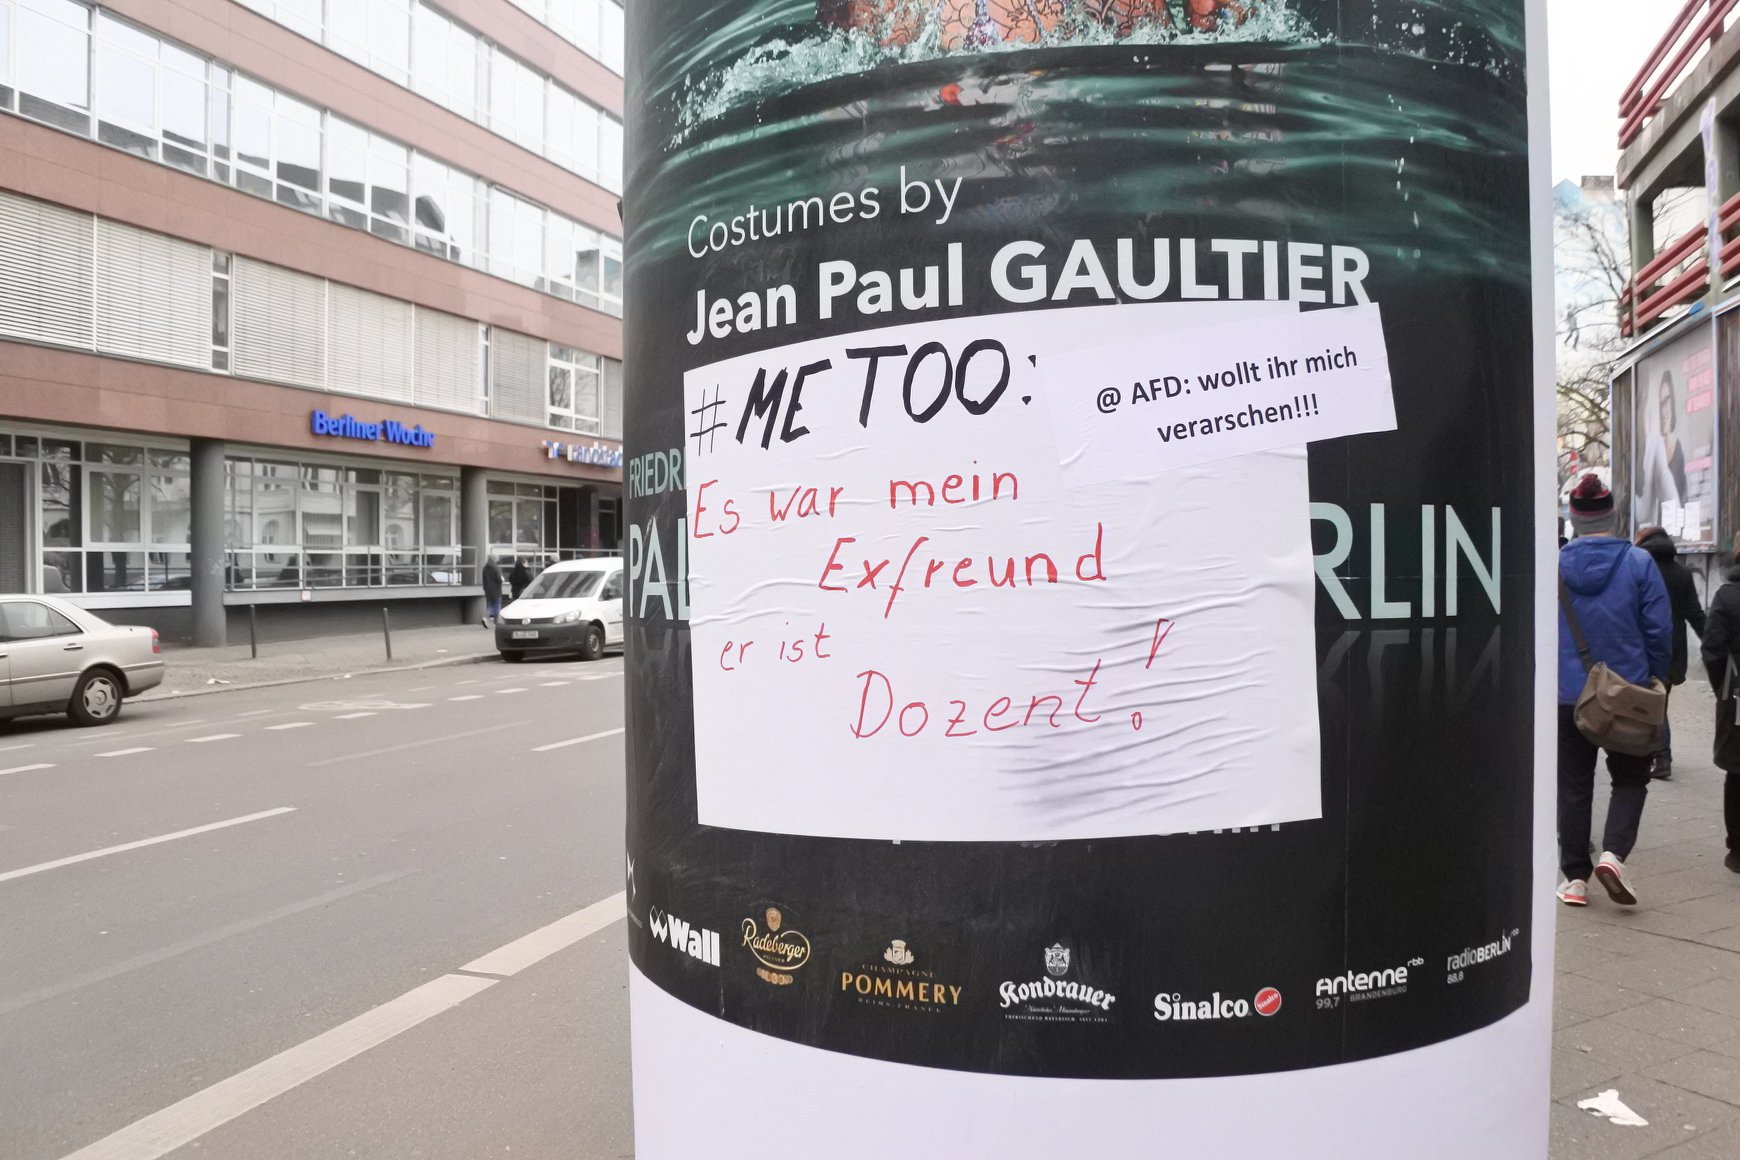 Costumes by
Jean Paul GAULTIER
#METOO:
@ AFD: wollt ihr mich
verarschen!!!
Es war mein
Exfreund
er ist
Dozent!
FRIEDR
PAL
RLIN
Berliner Woche
Wall
Radeberger
PILSNER
CHAMPAGNE
POMMERY
REIMS FRANCE
Kondrauer
Sinalco
Sinalco
Antenne rbb
99,7 BRANDENBURG
radioBERLIN rbb
88,8